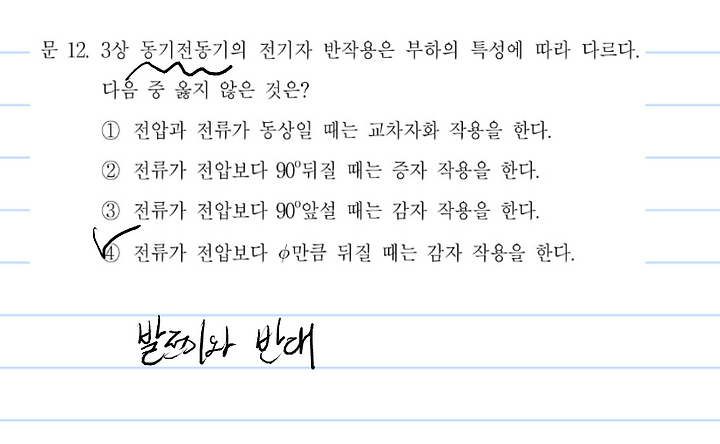 문 12. 3상 동기전동기의 전기자 반작용은 부하의 특성에 따라 다르다.
다음 중 옳지 않은 것은?
① 전압과 전류가 동상일 때는 교차자화 작용을 한다.
② 전류가 전압보다 90°뒤질 때는 증자 작용을 한다.
③ 전류가 전압보다 90°앞설 때는 감자 작용을 한다.
④ 전류가 전압보다 ϕ만큼 뒤질 때는 감자 작용을 한다.
발전기와 반대